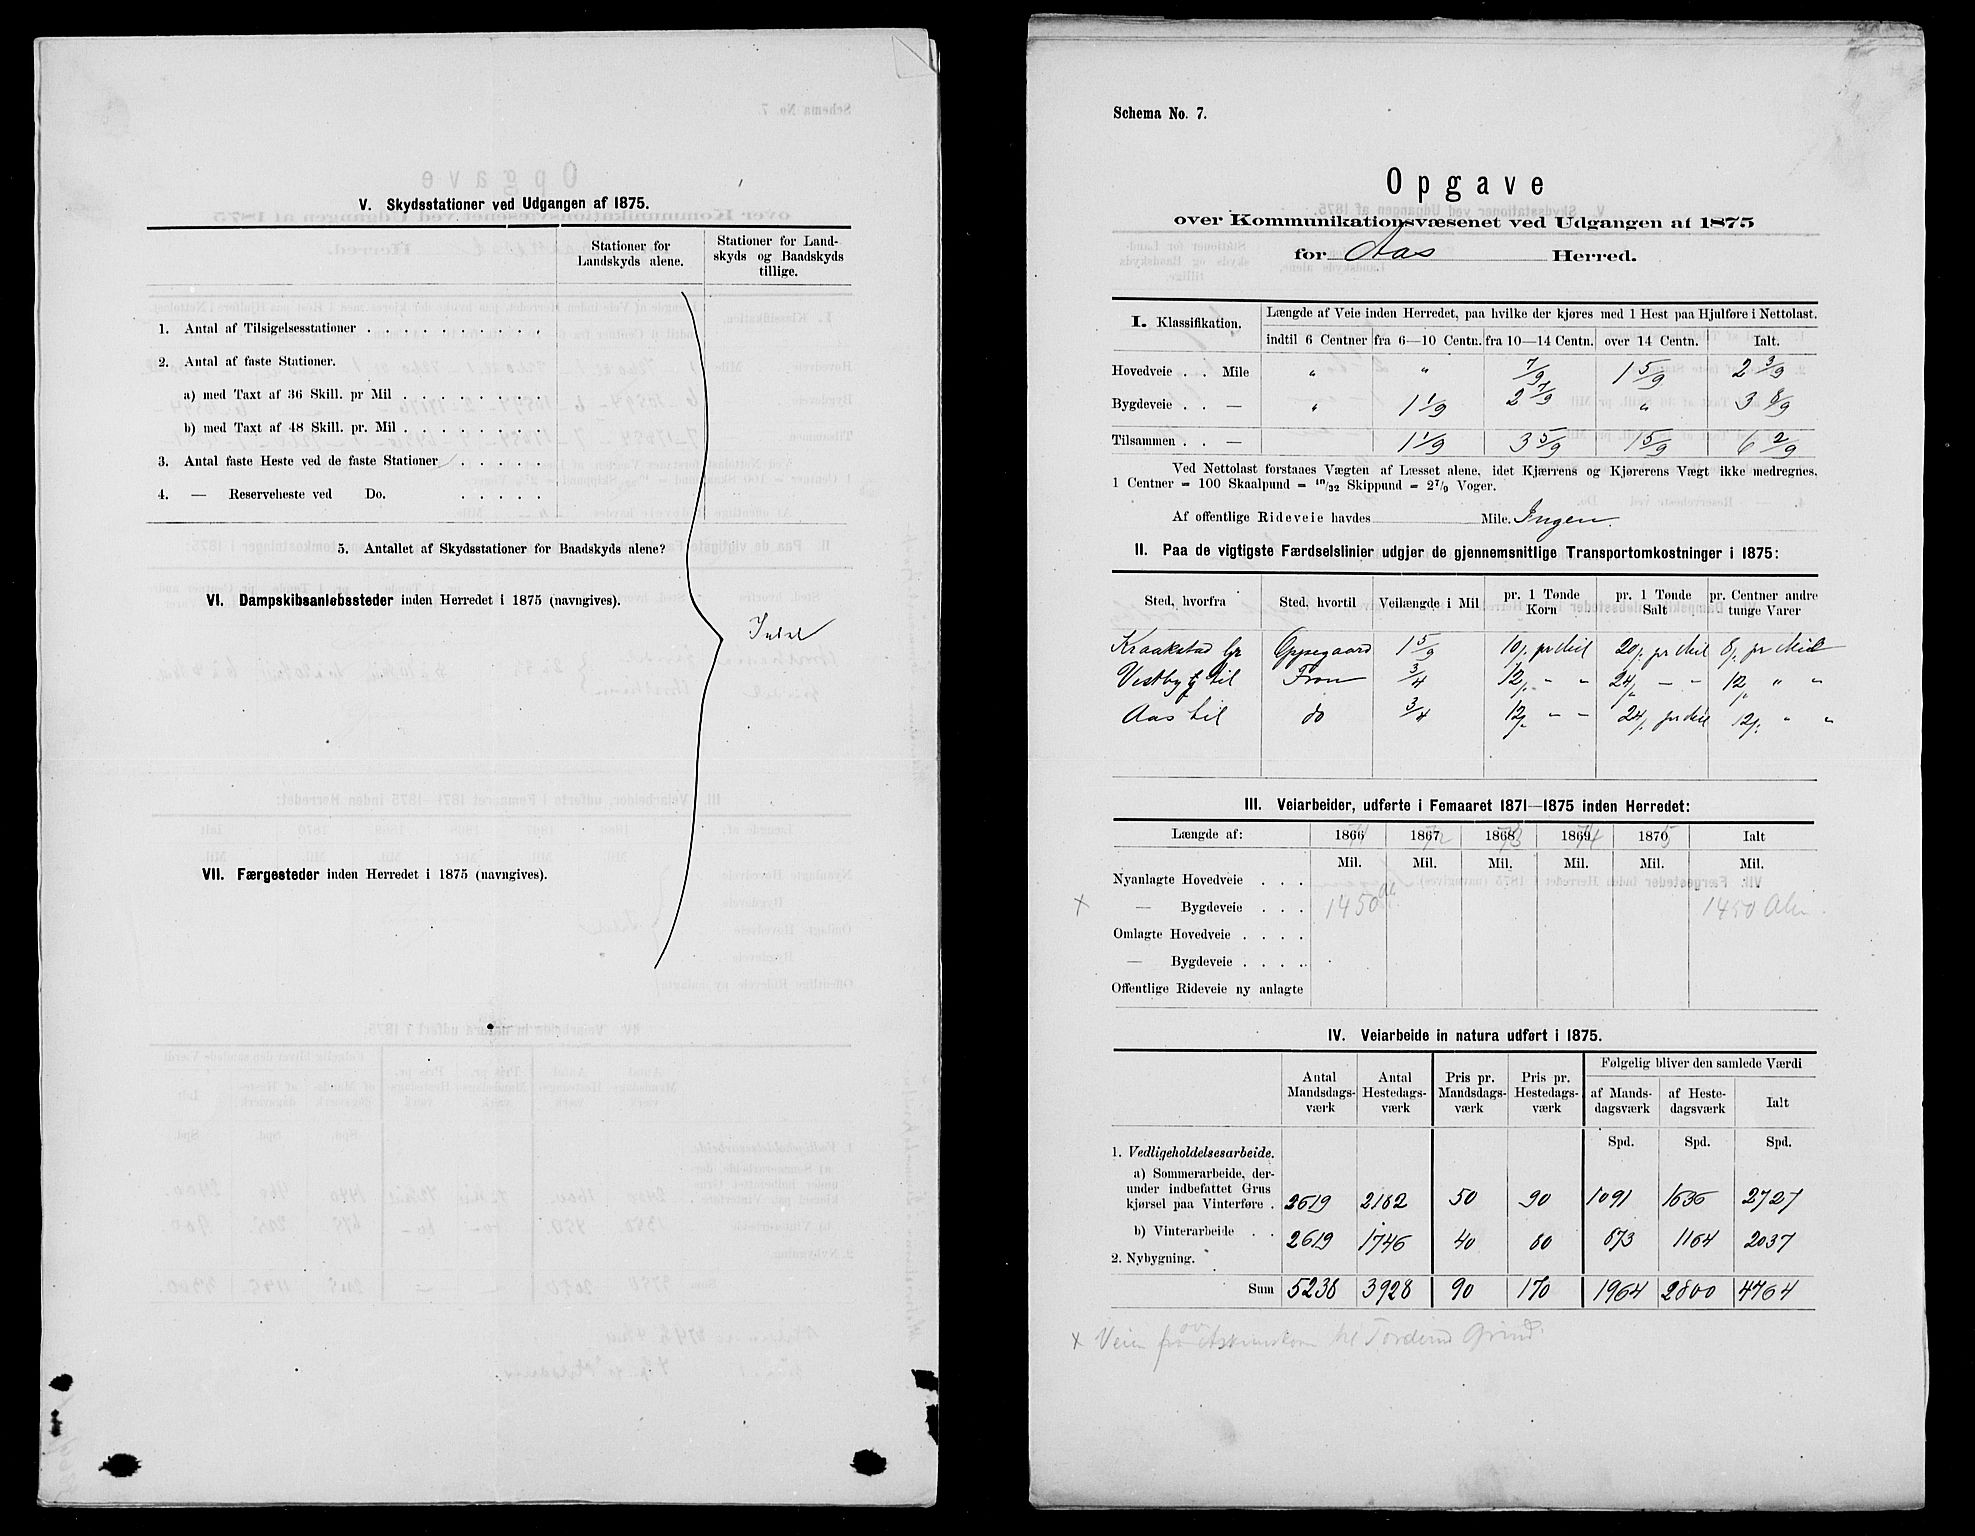 V. Skydsstationer ved Udgangen af 1875.
Stationer for Landskyds alene.
Stationer for Land-
skyds og Baadskyds
tillige.
1. Antal af Tilsigelsesstationer . . . . . . . . . .
2. Antal af faste Stationer.
a) med Taxt af 36 Skill. pr Mil . . . . . . . . .
b) med Taxt af 48 Skill. pr. Mil . . . . . . . . .
3. Antal faste Heste ved de faste Stationer . . . . .
4. — Reserveheste ved Do. . . . . .
5. Antallet af Skydsstationer for Baadskyds alene?
VI. Dampskibsanløbssteder inden Herredet i 1875 (navngives).
VII. Færgesteder inden Herredet i 1875 (navngives).
Schema No. 7.
Opgave
over Kommunikationsvæsenet ved Udgangen af 1875
for Aas Herred.
I. Klassifikation. Længde af Veie inden Herredet, paa hvilke der kjøres med 1 Hest paa Hjulføre i Nettolast.
indtil 6 Centner fra 6—10 Centn. fra 10—14 Centn. over 14 Centn. Ialt.
Hovedveie . . Mile " " 7/9 1 5/9 2 3/9
Bygdeveie . . — " 1 1/9 2 7/9 " 3 8/9
Tilsammen . . — 1 1/9 3 5/9 1 5/9 6 2/9
Ved Nettolast forstaaes Vægten af Læsset alene, idet Kjærrens og Kjørerens Vægt ikke medregnes.
1 Centner = 100 Skaalpund = 10/32 Skippund = 2 7/9 Voger.
Af offentlige Rideveie havdes Mile. Ingen.
II. Paa de vigtigste Færdselslinier udgjør de gjennemsnitlige Transportomkostninger i 1875:
Sted, hvorfra Sted, hvortil Veilængde i Mil pr. 1 Tønde Korn pr. 1 Tønde Salt pr. Centner andre tunge Varer
Kraakstad Gr Oppegaard 1 5/9 10 pr Mil 20 pr Mil 8 pr Mil
Vestby til Fron 3/4 12 " " 24 — " 12 " "
Aas til do 3/4 12 " " 24 pr Mil 12 " "
III. Veiarbeider, udførte i Femaaret 1871—1875 inden Herredet:
Længde af: 1866 71 1867 72 1868 73 1869 74 1870 5 Ialt
Mil. Mil. Mil. Mil. Mil. Mil.
Nyanlagte Hovedveie . . .
x — Bygdeveie . . . 1450 Al. 1450 Alen.
Omlagte Hovedveie . . . .
— Bygdeveie . . . .
Offentlige Rideveie ny anlagte
IV. Veiarbeide in natura udført i 1875.
Følgelig bliver den samlede Værdi
Antal Mandsdags-værk Antal Hestedags-værk Pris pr. Mandsdags-værk Pris pr. Hestedags-værk af Mands-dagsværk af Heste-dagsværk Ialt
Spd. Spd. Spd.
1. Vedligeholdelsesarbeide.
a) Sommerarbeide, der-
under indbefattet Grus
kjørsel paa Vinterføre . 2619 2182 50 90 1091 1636 2727
b) Vinterarbeide . . 2619 1746 40 80 873 1164 2037
2. Nybygning.
Sum 5238 3928 90 170 1964 2800 4764
x Veien fra til Grind